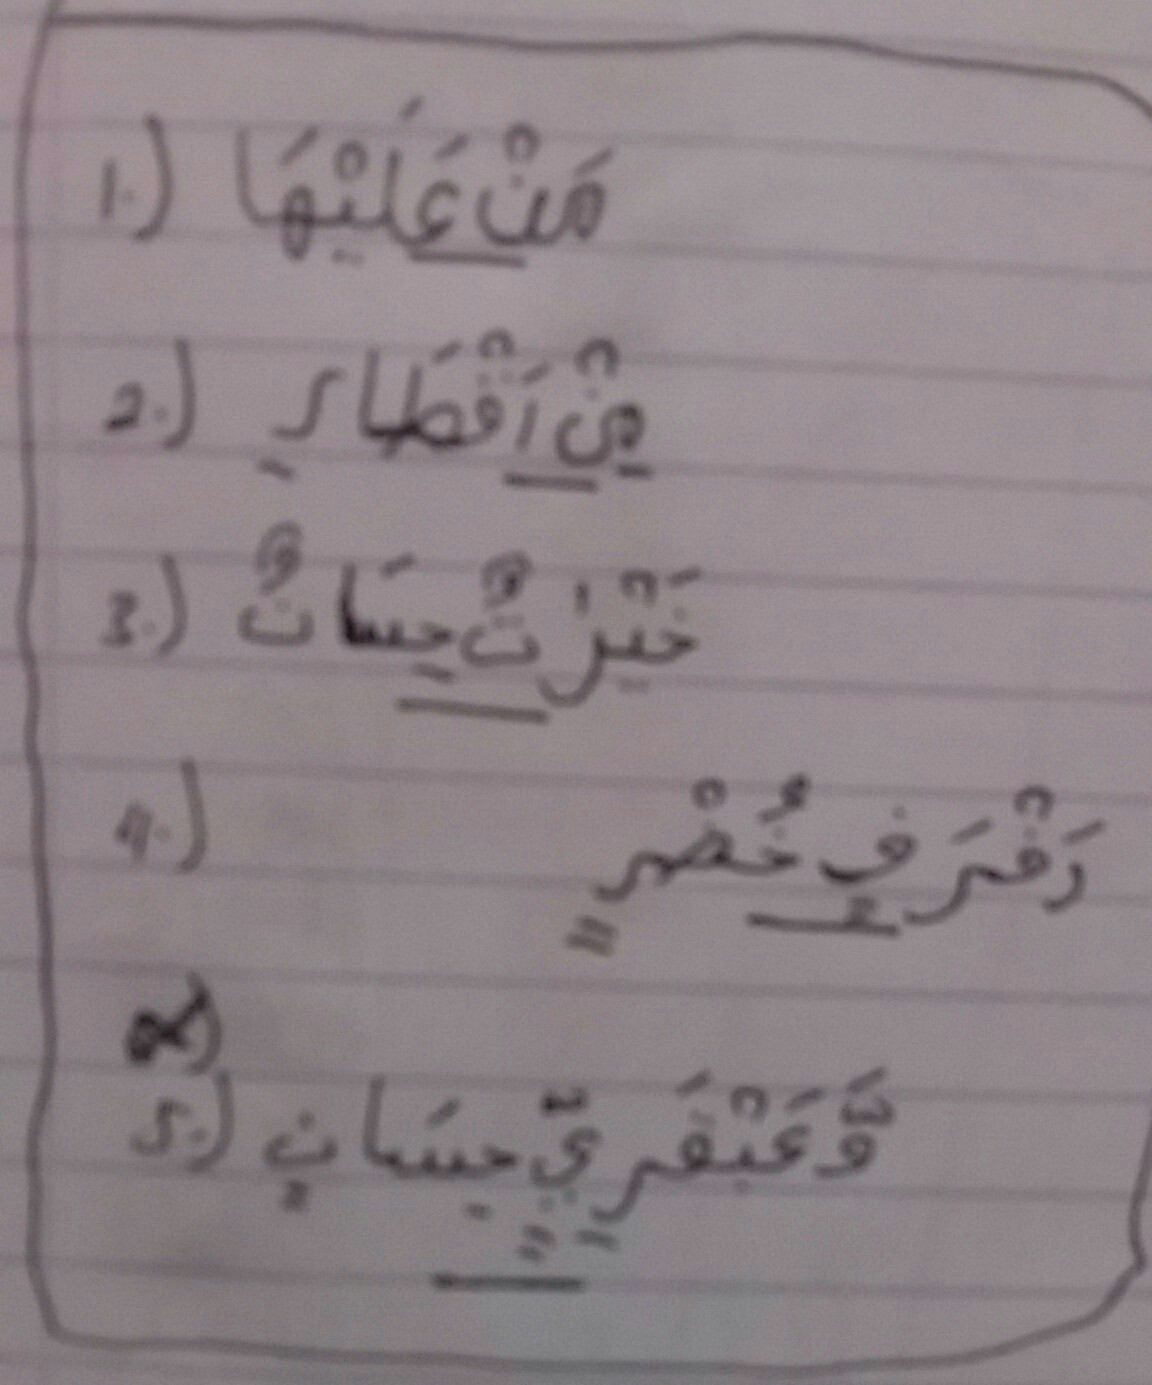 1.) مَنْ عَلَيْهَا
2.) مِنْ اَقْطَارِ
3.) خَيْرٰتٌ حِسَانٌ
4.) رَفْرَفٍ خُضْرٍ
5.) وَّعَبْقَرِيٍّ حِسَانٍ